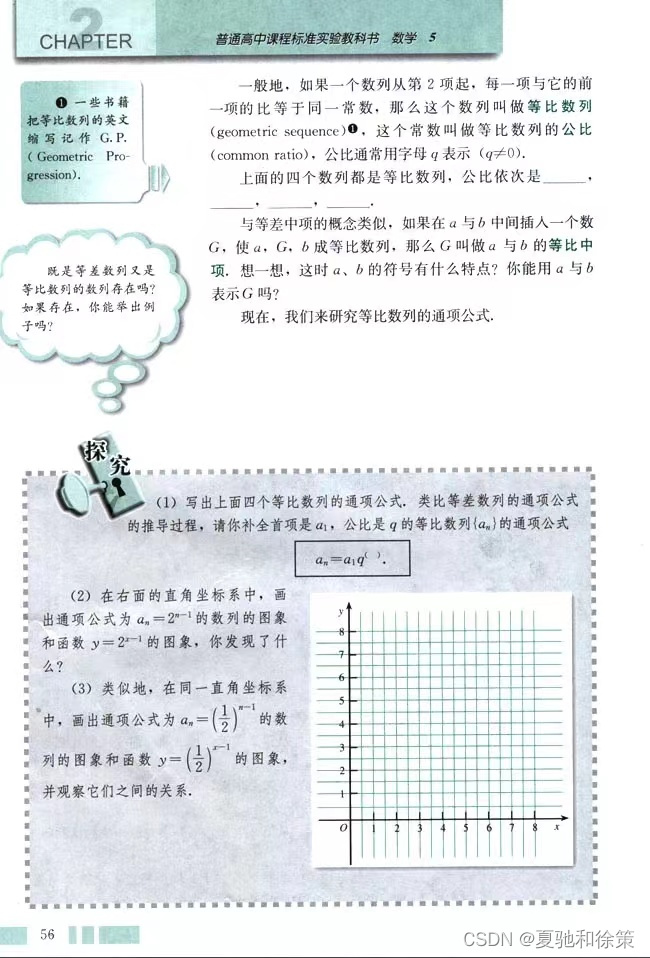 2
CHAPTER
普通高中课程标准实验教科书 数学 5
❶ 一些书籍
把等比数列的英文
缩写记作 G.P.
(Geometric Pro-
gression).
一般地，如果一个数列从第 2 项起，每一项与它的前
一项的比等于同一常数，那么这个数列叫做等比数列
(geometric sequence)❶，这个常数叫做等比数列的公比
(common ratio)，公比通常用字母 q 表示 (q≠0).
上面的四个数列都是等比数列，公比依次是____，
____，____，____.
与等差中项的概念类似，如果在 a 与 b 中间插入一个数
G，使 a，G，b 成等比数列，那么 G 叫做 a 与 b 的等比中
项. 想一想，这时 a、b 的符号有什么特点？你能用 a 与 b
表示 G 吗？
现在，我们来研究等比数列的通项公式.
既是等差数列又是
等比数列的数列存在吗？
如果存在，你能举出例
子吗？
探究
(1) 写出上面四个等比数列的通项公式. 类比等差数列的通项公式
的推导过程，请你补全首项是 a₁，公比是 q 的等比数列{aₙ}的通项公式
aₙ=a₁q⁽ ⁾.
(2) 在右面的直角坐标系中，画
出通项公式为 aₙ=2ⁿ⁻¹ 的数列的图象
和函数 y=2ˣ⁻¹ 的图象，你发现了什
么？
(3) 类似地，在同一直角坐标系
中，画出通项公式为 aₙ=(1/2)ⁿ⁻¹ 的数
列的图象和函数 y=(1/2)ˣ⁻¹ 的图象，
并观察它们之间的关系.
y
8
7
6
5
4
3
2
1
O 1 2 3 4 5 6 7 8 x
56
CSDN @夏驰和徐策